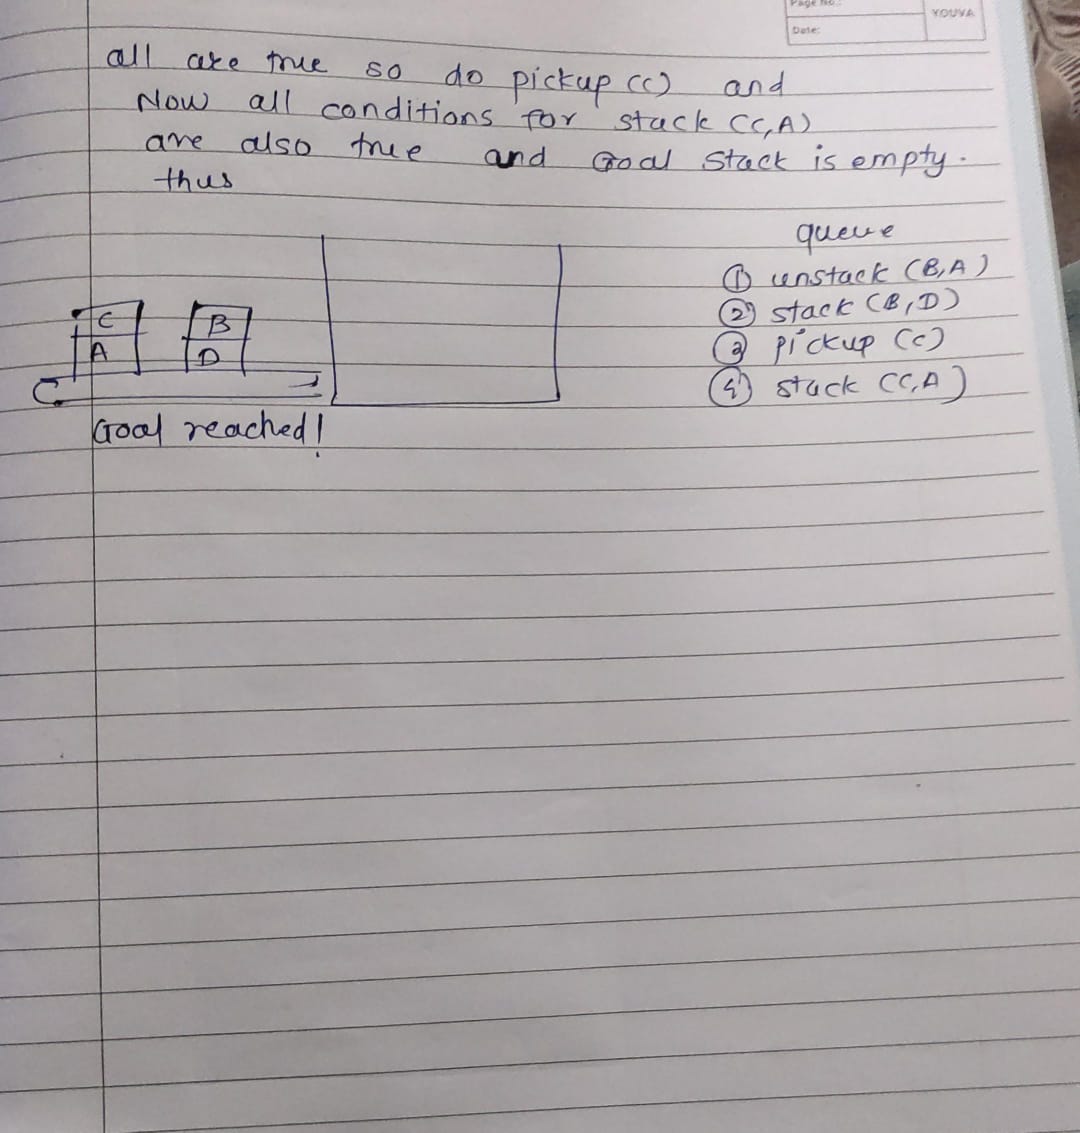 Page No.:
YOUVA
Date:
all are true so do pickup (c) and
Now all conditions for stack (C,A)
are also true and Goal stack is empty.
thus
queue
① unstack (B,A)
② stack (B,D)
③ pickup (c)
④ stack (C,A)
C
B
A
D
Goal reached!